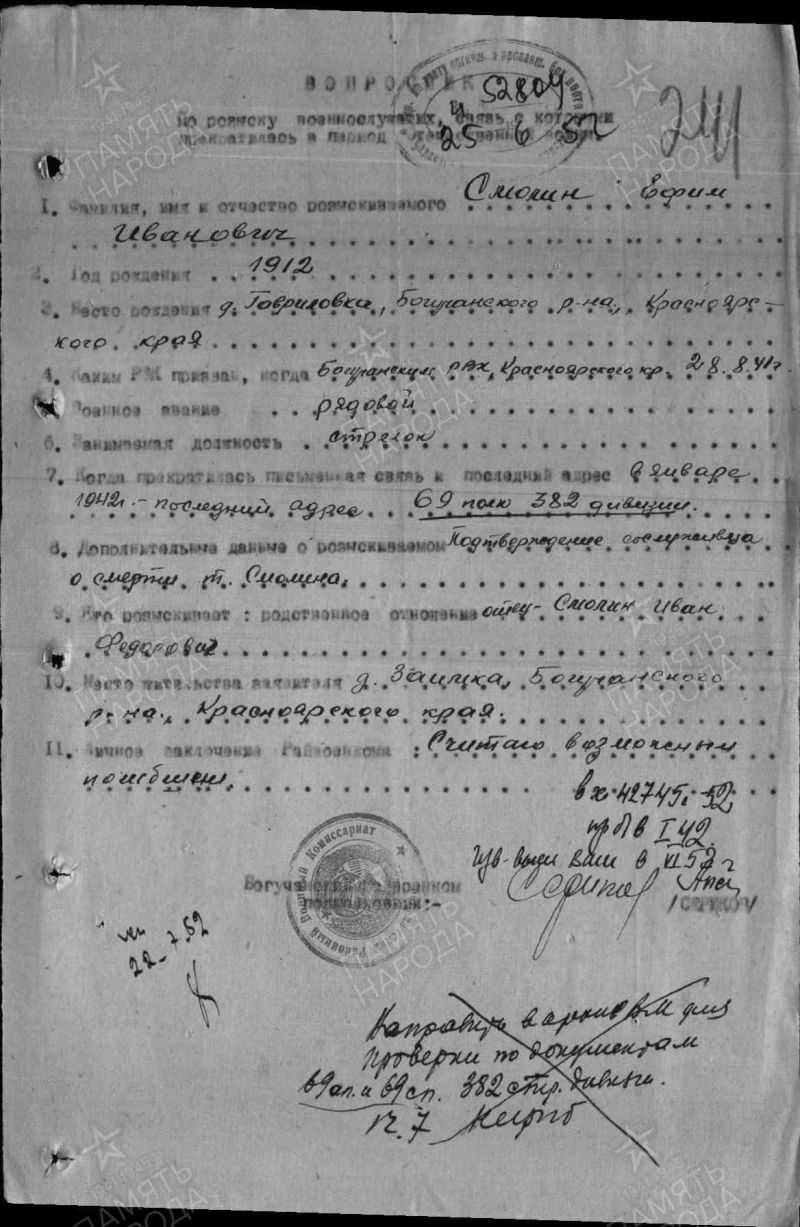 ВОПРОСНИК
52809
25 6 52
241
по розыску военнослужащих, связь с которыми
прекратилась в период Отечественной войны
1. Фамилия, имя и отчество розыскиваемого Смолин Ефим
Иванович
2. Год рождения 1912
3. Место рождения д. Гавриловка, Богучанского р-на, Красноярс-
кого края
4. Каким РВК призван, когда Богучанским РВК, Красноярского кр. 28.8.41 г
Военное звание рядовой
6. Занимаемая должность стрелок
7. Когда прекратилась письменная связь и последний адрес в январе
1942г. - последний адрес 69 полк 382 дивизии.
8. Дополнительные данные о розыскиваемом Подтверждение сослуживца
о смерти т. Смолина.
9. Кто розыскивает: родственное отношение отец - Смолин Иван
Федорович
10. Место жительства заявителя д. Заимка, Богучанского
р-на, Красноярского края.
11. Личное заключение Райвоенкома: Считаю возможным
погибшим.
вх 42745. 52
пр б/в I 42.
Изв-
в VI 52 г
Районный Военный Комиссариат
Богучанский райвоенком
подполковник:-
22-7.52
Направить в архив ВМ для
проверки по документам
69 ап. и 69 сп. 382 стр. дивизии.
ПАМЯТЬ НАРОДА